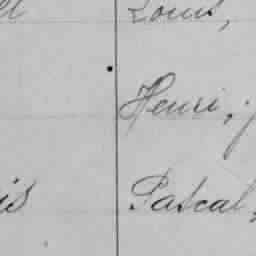 Louis,
Henri,
Pascal,